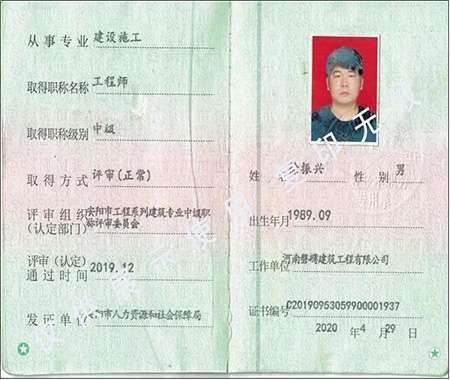 从事专业 建设施工
取得职称名称 工程师
取得职称级别 中级
取得方式 评审(正常)
评审组织 安阳市工程系列建筑专业中级职
(认定部门) 称评审委员会
评审(认定)
通过时间 2019.12
发证单位 安阳市人力资源和社会保障局
姓名 振兴 性别 男
出生年月 1989.09
工作单位 河南 建筑工程有限公司
证书编号 C20190953059900001937
2020 年 4 月 29 日